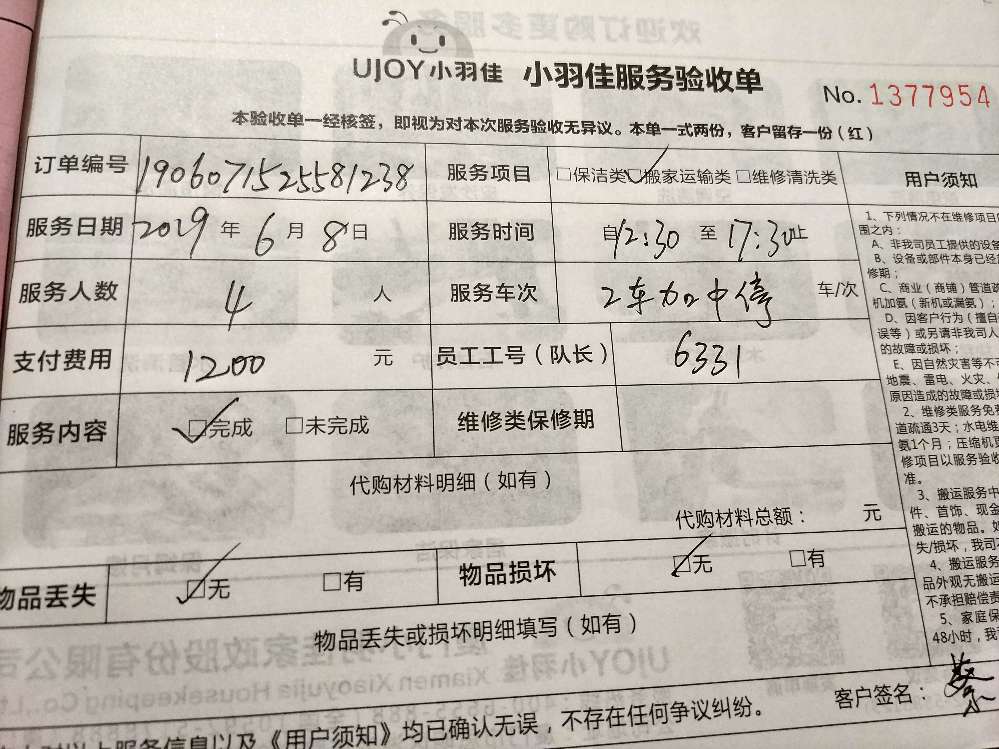 UJOY小羽佳 小羽佳服务验收单
No. 1377954
本验收单一经核签，即视为对本次服务验收无异议。本单一式两份，客户留存一份（红）
订单编号 190607152558 1238 服务项目 □保洁类 ☑搬家运输类 □维修清洗类
服务日期 2019 年 6 月 8 日 服务时间 自 12:30 至 17:30 止
服务人数 4 人 服务车次 2车加中停 车/次
支付费用 1200 元 员工工号（队长） 6331
服务内容 ☑完成 □未完成 维修类保修期
代购材料明细（如有）
代购材料总额： 元
物品丢失 ☑无 □有 物品损坏 ☑无 □有
物品丢失或损坏明细填写（如有）
客户签名：
以上服务信息以及《用户须知》均已确认无误，不存在任何争议纠纷。
用户须知
1、下列情况不在维修项目
围之内：
A、非我司员工提供的设备
B、设备或部件本身已经
修期；
C、商业（商铺）管道疏
机加氨（新机或漏氨）；
D、因客户行为（擅自
误等）或另请非我司人
的故障或损坏；
E、因自然灾害等不可
地震、雷电、火灾、
原因造成的故障或损
2、维修类服务免费
道疏通3天；水电维
氨1个月；压缩机
修项目以服务验收
准。
3、搬运服务中
件、首饰、现金
搬运的物品。如
失/损坏，我司不
4、搬运服务
品外观无搬运
不承担赔偿责
5、家庭保
48小时，我